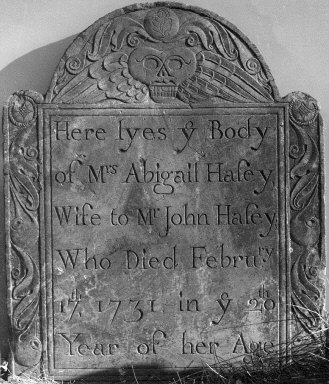 Here lyes yͤ Body
of Mʳˢ Abigail Haſey
Wife to Mʳ John Haſey
Who Died Februʳʸ
17ᵗʰ 1731. in yͤ 20ᵗʰ
Year of her Age